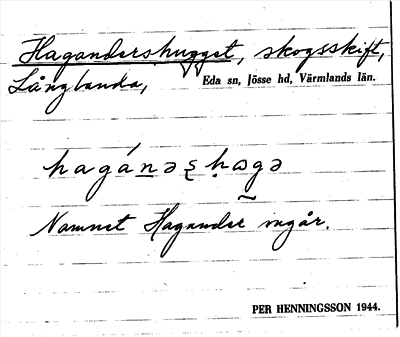 Hagandershugget, skogsskift,
Långlanda, Eda sn, Jösse hd, Värmlands län.
hagánəʂ ḥɷgə
Namnet Hagander ingår.
PER HENNINGSSON 1944.